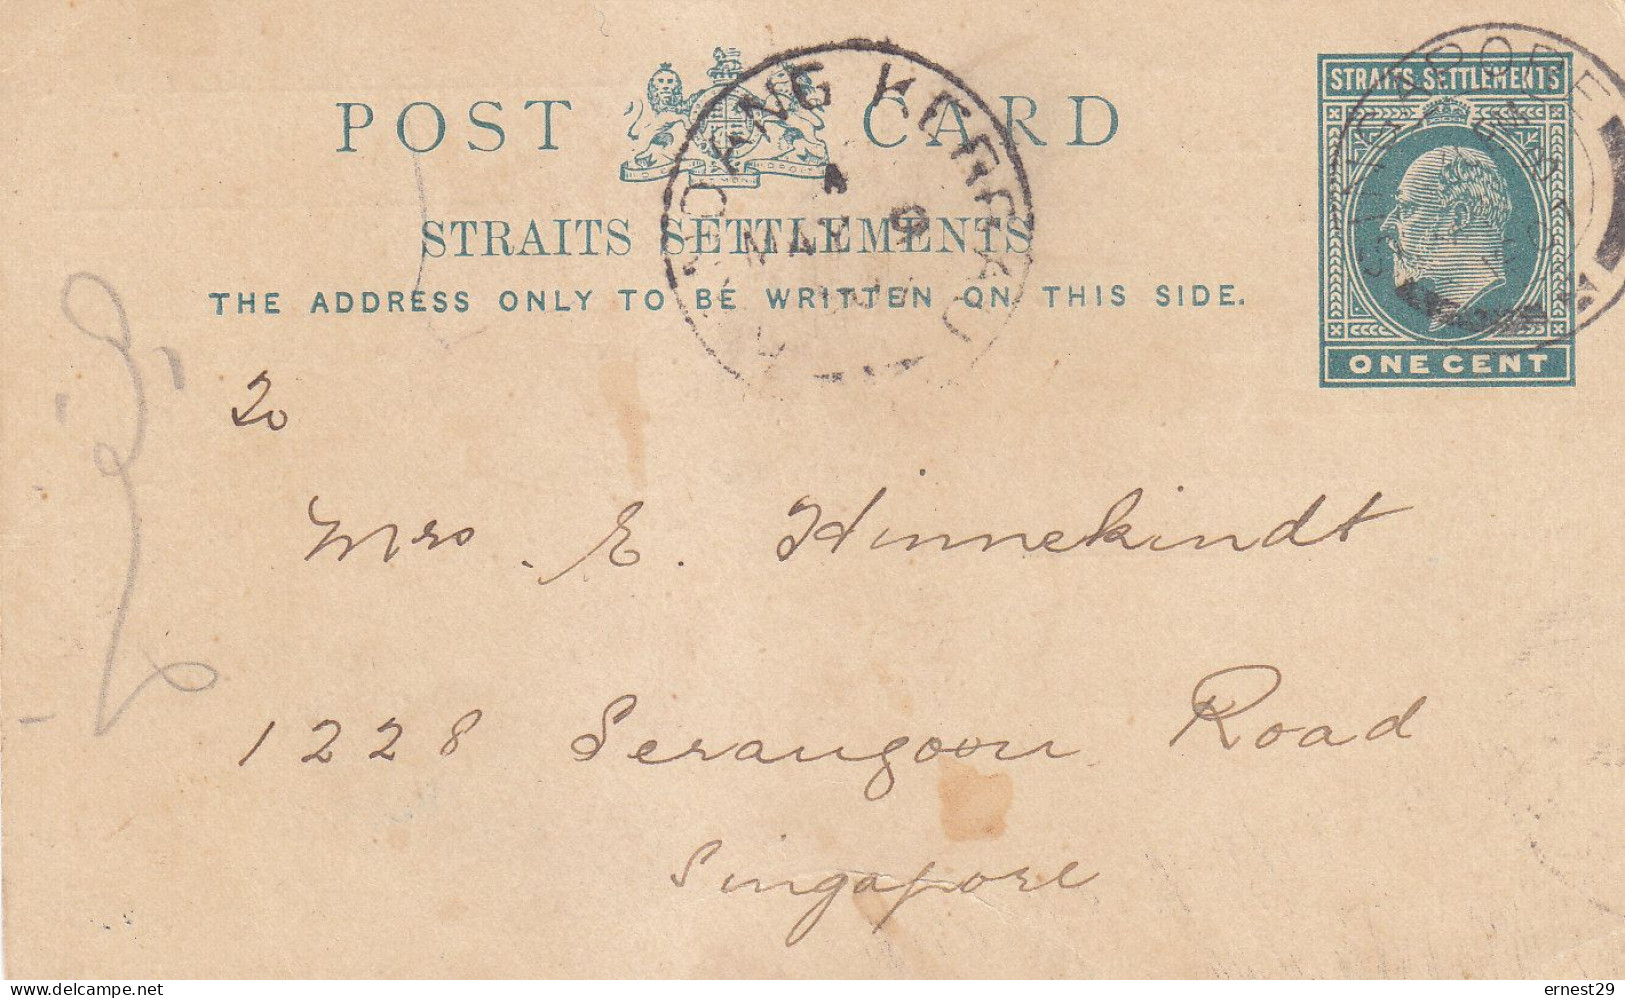 POST CARD
STRAITS SETTLEMENTS
THE ADDRESS ONLY TO BE WRITTEN ON THIS SIDE.
STRAITS SETTLEMENTS
ONE CENT
SINGAPORE
KANDANG KERBAU
A
MY 9
To
Mrs. E. Hinnekindt
1228 Serangoon Road
Singapore
delcampe.net
ernest29